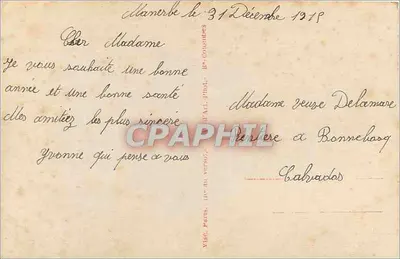 Manerbe le 31 Décembre 1918
Cher Madame
Je vous souhaite une bonne
année et une bonne santé
Mes amitiez les plus sincere
Yvonne qui pense a vous
Madame veuve Delamare
a Bonnebosq
Calvados
CPARHIL
Visé, Paris.